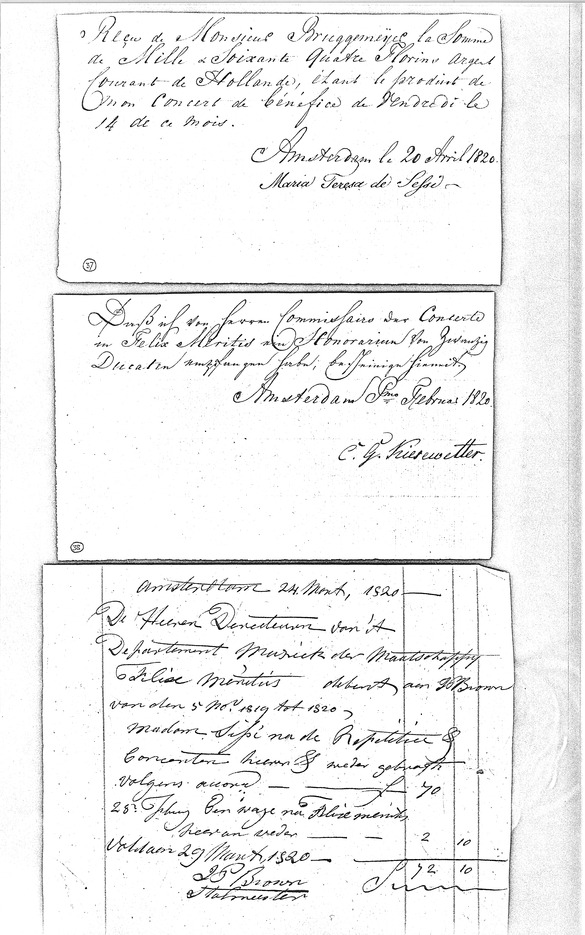 Reçu de Monsieur Bruggemeyer la Somme
de Mille & Soixante Quatre Florins argent
Courant de Hollande, étant le produit de
mon Concert de bénéfice de Vendredi le
14 de ce mois.
Amsterdam le 20 Avril 1820.
Maria Teresa de Sessi
37
Daß ich von Herren Commissairs der Concerte
in Felix Meritis ein Honorarium von Zwanzig
Ducaten empfangen habe, bescheinige hiemit
Amsterdam Februar 1820.
C. G. Kiesewetter.
38
Amsterdam 24 Mart, 1820
De Heeren Directeuren van 't
Departement Muziek der Maatschappy
Felix Meritis debent aan JP Brown
van den 5 Nov. 1819 tot 1820
Madam Sessi na de Repetitie &
Concerten heen & weder gebragt
volgens accoord f 70
25 Een wage na Felix meritis
heen en weder 2 10
Voldaan 29 Mart 1820
72 10
JP Brown
Stalmeester